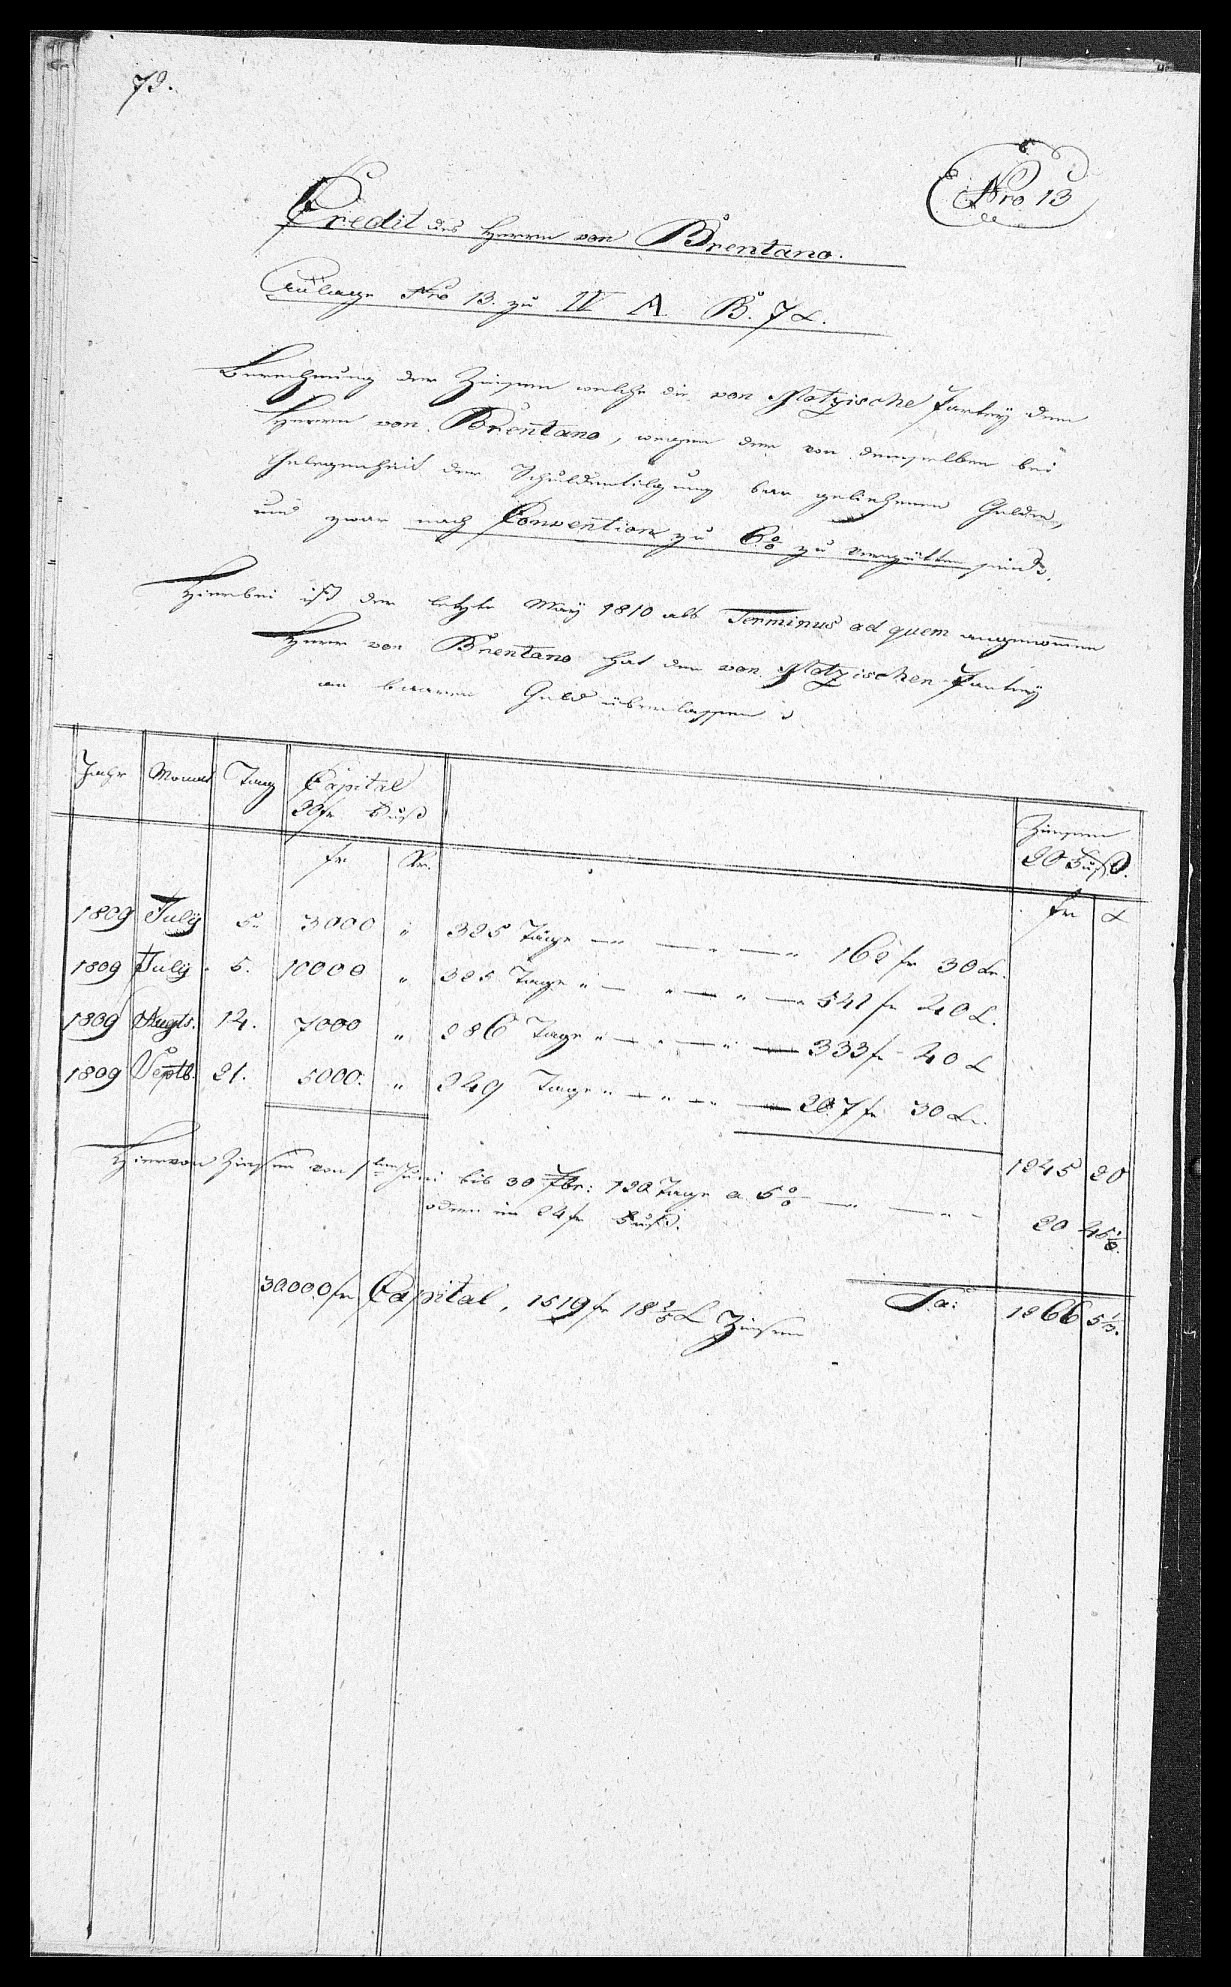 72.
Nro 13
Credit des Herrn von Brentano.
Anlage Nro 13. zu IV A. B. 7 α.
Berechnung der Zinsen welche die von Motzische Parthey dem
Herrn von Brentano, wegen der von demselben bei
Gelegenheit der Schuldentilgung baar geliehenen Gelder,
und zwar nach Convention zu 6 0/0 zu vergütten sind.
Hierbei ist der letzte May 1810 als Terminus ad quem angenommen
Herr von Brentano hat der von Motzischen Parthey
an baarem Geld überlassen
Jahr Monat Tag Capital Zinsen
20 fr Fuß 20 Fuß.
fr Kr. fr x
1809 July 5. 3000 " 325 Tage — " — " — " 162 fr 30 Kr.
1809 July 5. 10000 " 325 Tage " — " — " — 541 fr 40 x.
1809 Augts. 14. 7000 " 286 Tage " — " — " — 333 fr 40 x
1809 Septb. 21. 5000. " 249 Tage " — " — " — 207 fr 30 Kr.
1245 20
Hiervon Zinsen von 1ten Juni bis 30 7br: 120 Tage a 5 0/0 — " — " - 20 45 1/3.
oder im 24 fr Fuß.
Sa: 1266 5 1/3.
30000 fr Capital, 1519 fr 18 2/5 x Zinsen